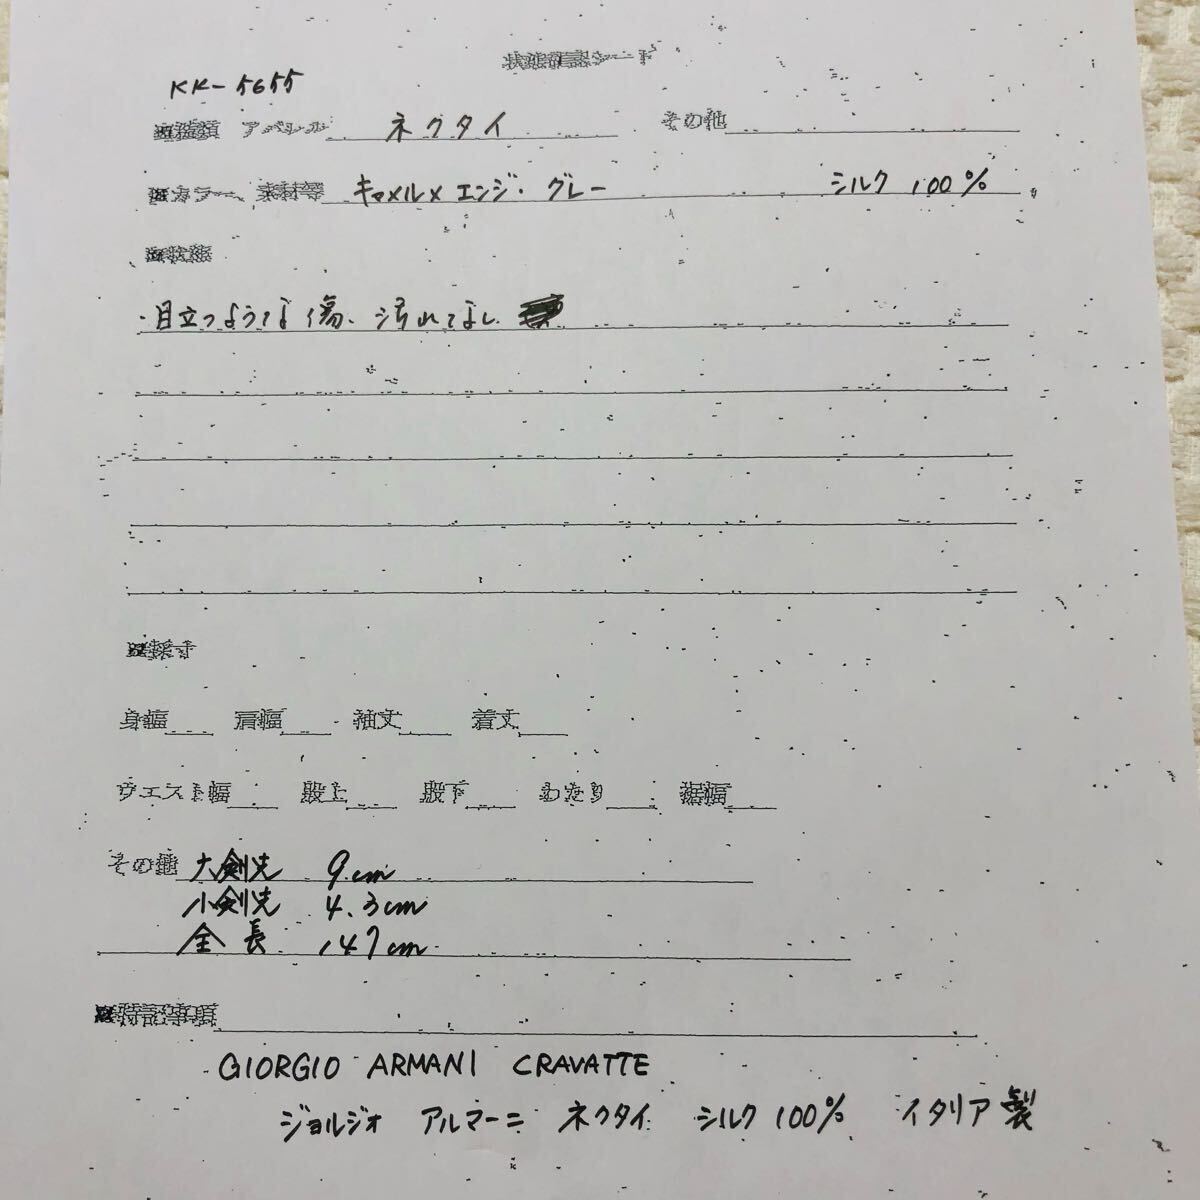 状態確認シート
KK-5655
■種類 アパレル ネクタイ その他
■カラー、素材等 キャメル×エンジ・グレー シルク 100%
■状態
・目立つような傷、汚れてなし
■採寸
身幅 肩幅 袖丈 着丈
ウエスト幅 股上 股下 わたり 裾幅
その他 大剣先 9cm
小剣先 4.3cm
全長 147cm
■特記事項
GIORGIO ARMANI CRAVATTE
ジョルジオ アルマーニ ネクタイ シルク 100% イタリア製